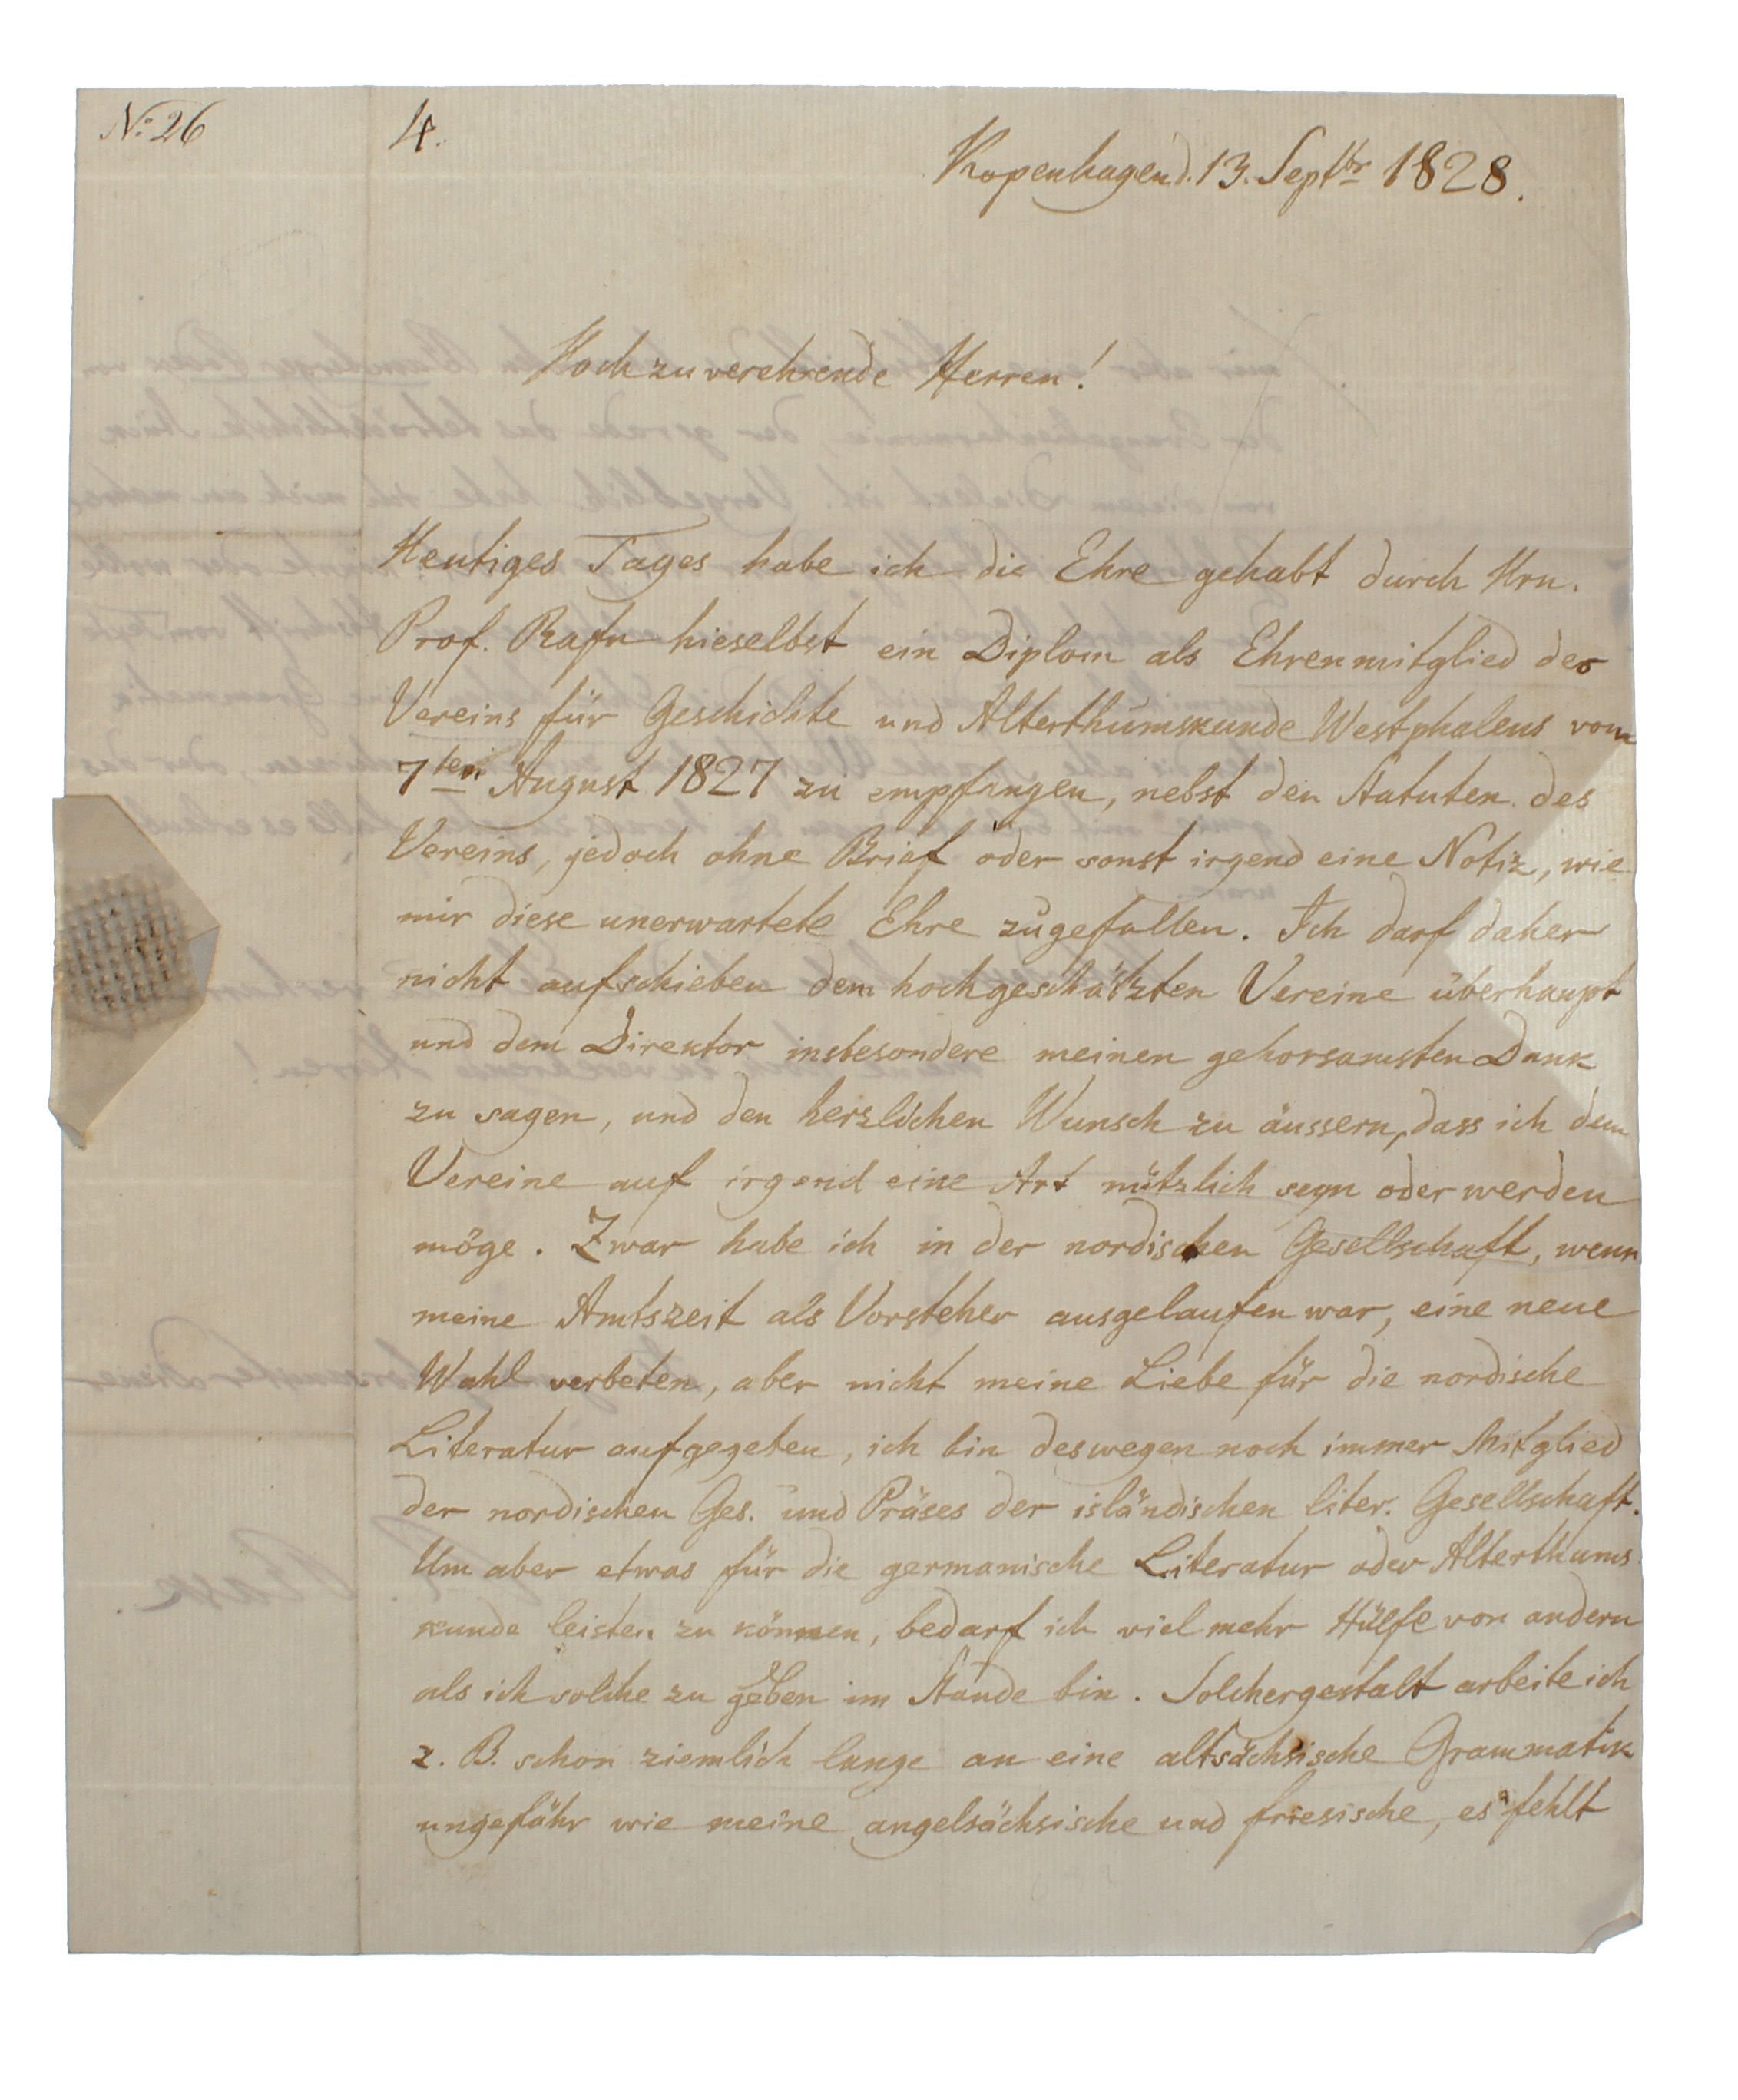 No: 26
4.
Kopenhagen d. 13. Septbr 1828.
Hochzuverehrende Herren!
Heutiges Tages habe ich die Ehre gehabt durch Hrn.
Prof. Rafn hieselbst ein Diplom als Ehrenmitglied des
Vereins für Geschichte und Alterthumskunde Westphalens vom
7ten August 1827 zu empfangen, nebst den Statuten des
Vereins, jedoch ohne Brief oder sonst irgend eine Notiz, wie
mir diese unerwartete Ehre zugefallen. Ich darf daher
nicht aufschieben dem hochgeschätzten Vereine überhaupt
und dem Direktor insbesondere meinen gehorsamsten Dank
zu sagen, und den herzlichen Wunsch zu äussern, dass ich dem
Vereine auf irgend eine Art nützlich seyn oder werden
möge. Zwar habe ich in der nordischen Gesellschaft, wenn
meine Amtszeit als Vorsteher ausgelaufen war, eine neue
Wahl verbeten, aber nicht meine Liebe für die nordische
Literatur aufgegeben, ich bin deswegen noch immer Mitglied
der nordischen Ges. und Präses der isländischen liter. Gesellschaft.
Um aber etwas für die germanische Literatur oder Alterthums-
kunde leisten zu können, bedarf ich viel mehr Hülfe von andern
als ich solche zu geben im Stande bin. Solchergestalt arbeite ich
z. B. schon ziemlich lange an eine altsächsische Grammatik
ungefähr wie meine angelsächsische und friesische, es fehlt